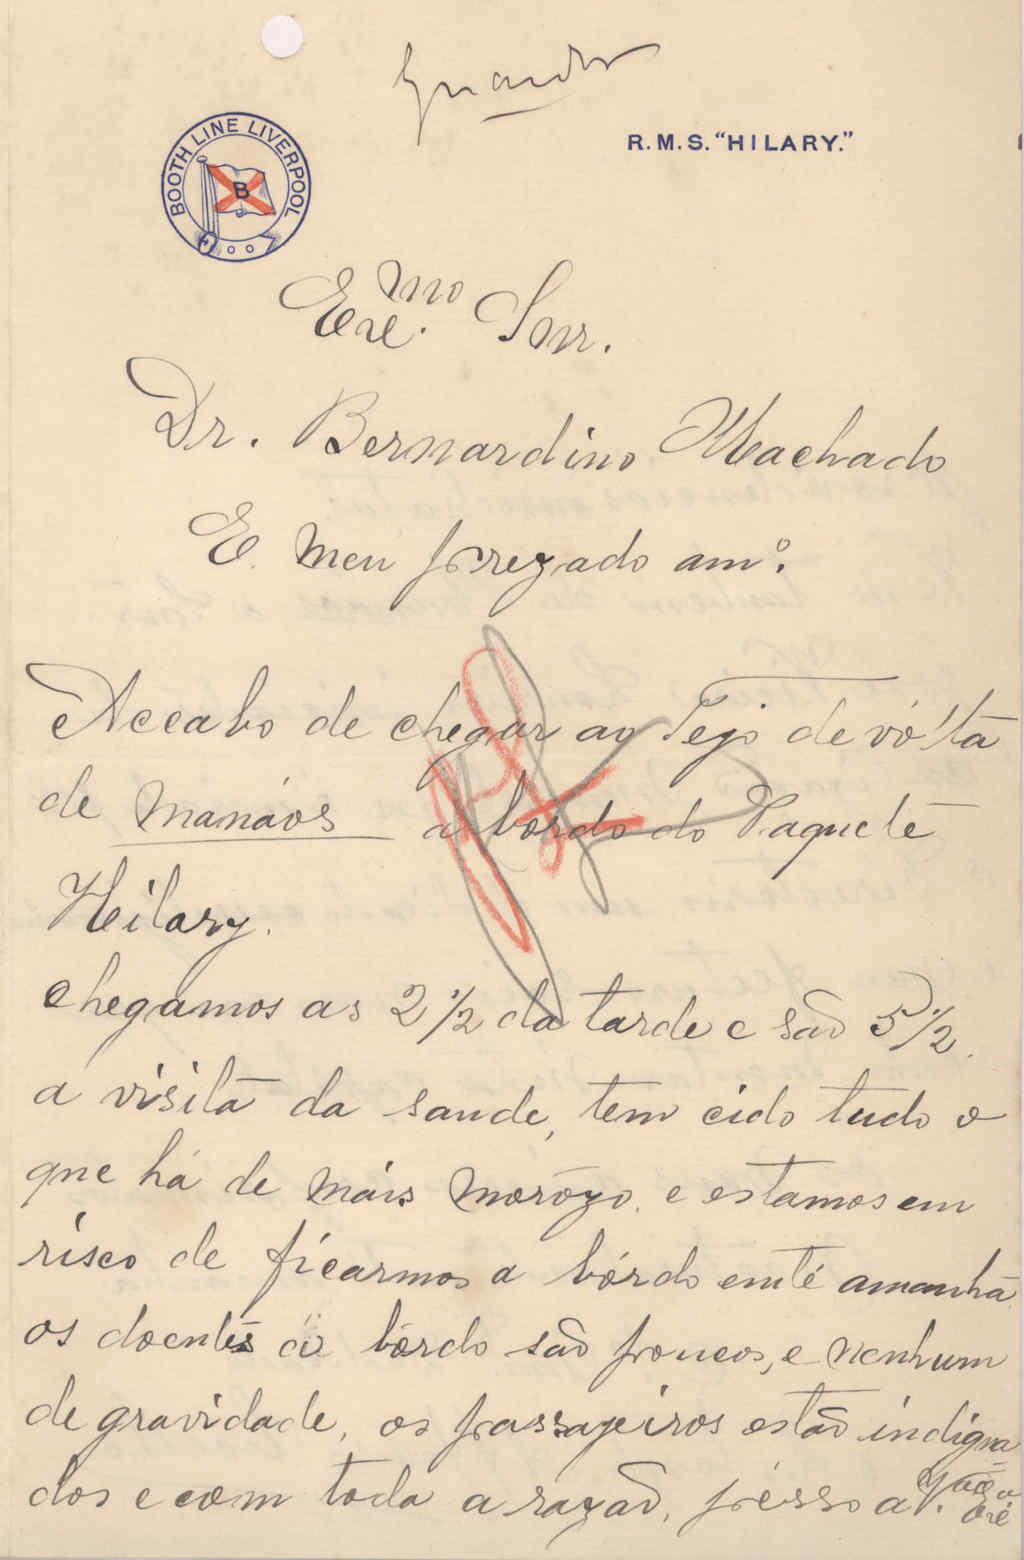 Guardar
BOOTH LINE LIVERPOOL
B
R.M.S. "HILARY."
Exe.mo Snr.
Dr. Bernardino Machado
E. meu prezado am.º
Accabo de chegar ao Tejo de vólta
de Manáos a bordo do Paquete
Hilary.
chegamos as 2 1/2 da tarde e são 5 1/2.
a visita da saude, tem cido tudo o
que há de máis morôzo. e estamos em
risco de ficarmos a bórdo emté amanhã
os doentes a bordo são poucos, e nenhum
de gravidade, os passajeiros estão indigna
dos e com toda a razão, pésso a V.